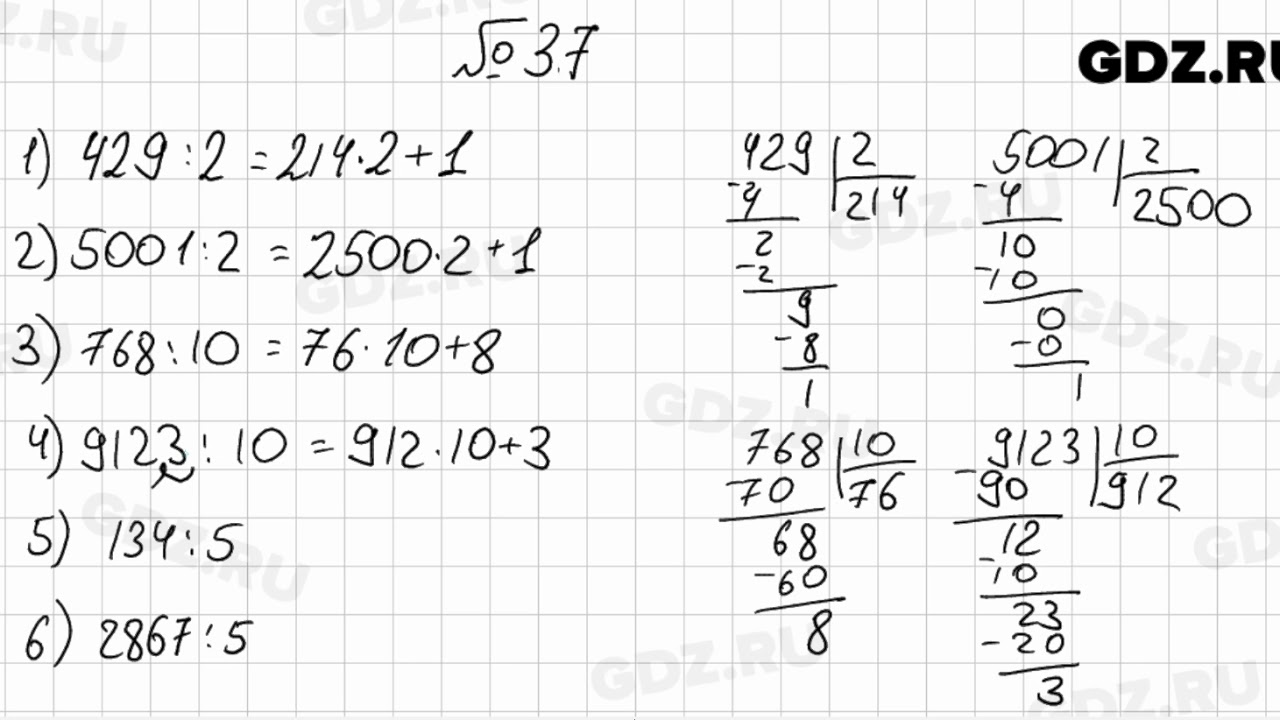 № 3.7
GDZ.RU
1) 429 : 2 = 214 · 2 + 1
2) 5001 : 2 = 2500 · 2 + 1
3) 768 : 10 = 76 · 10 + 8
4) 9123 : 10 = 912 · 10 + 3
5) 134 : 5
6) 2867 : 5
429 | 2
-4 | 214
2
-2
9
-8
1
5001 | 2
-4 | 2500
10
-10
0
-0
1
768 | 10
-70 | 76
68
-60
8
9123 | 10
-90 | 912
12
-10
23
-20
3